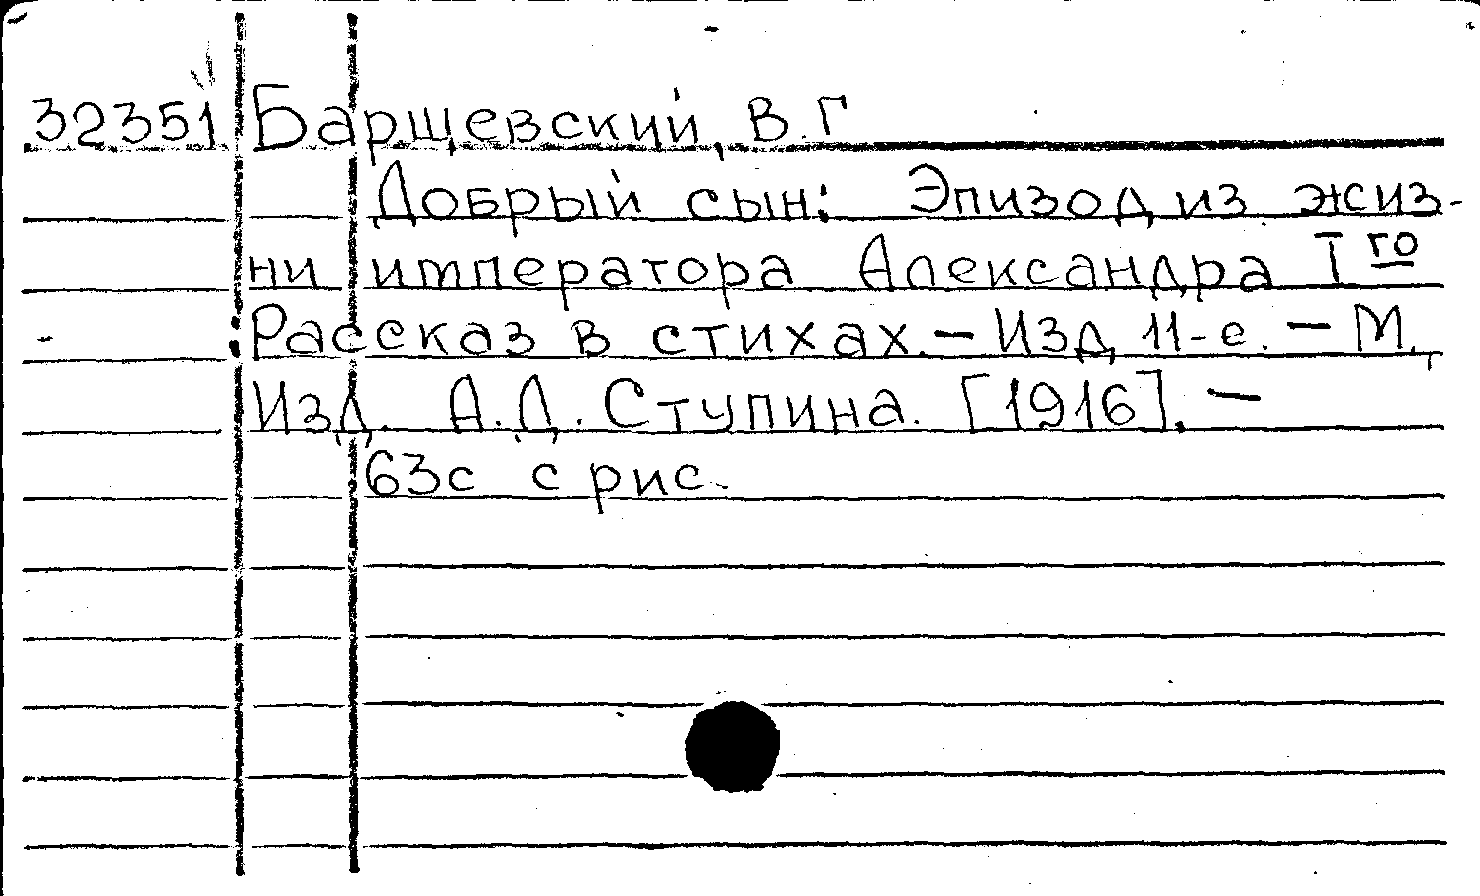 32351 Барщевский, В.Г
Добрый сын: Эпизод из жиз-
ни императора Александра I го
Рассказ в стихах. — Изд 11-е. — М.,
Изд. А.Д. Ступина. [1916]. —
63с с рис.